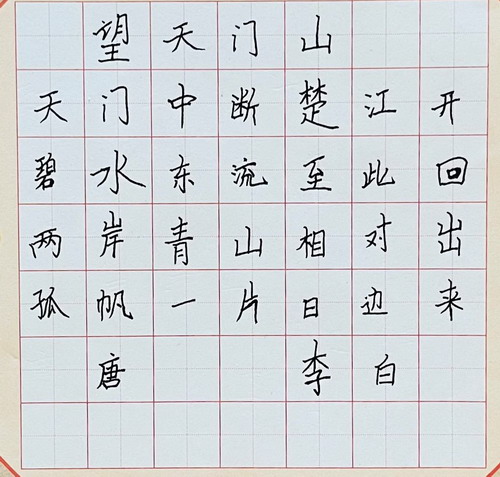 望天门山
天门中断楚江开
碧水东流至此回
两岸青山相对出
孤帆一片日边来
唐 李白